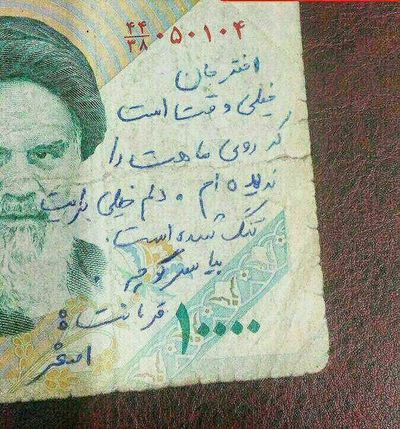 ۴۴/۳۸ ۰۵۰۱۰۴
اختر جان
خیلی وقت است
که روی ماهت را
ندیده ام ، دلم خیلی برایت
تنگ شده است .
بیا سر کوچه .
قربانت
اصغر
۱۰۰۰۰